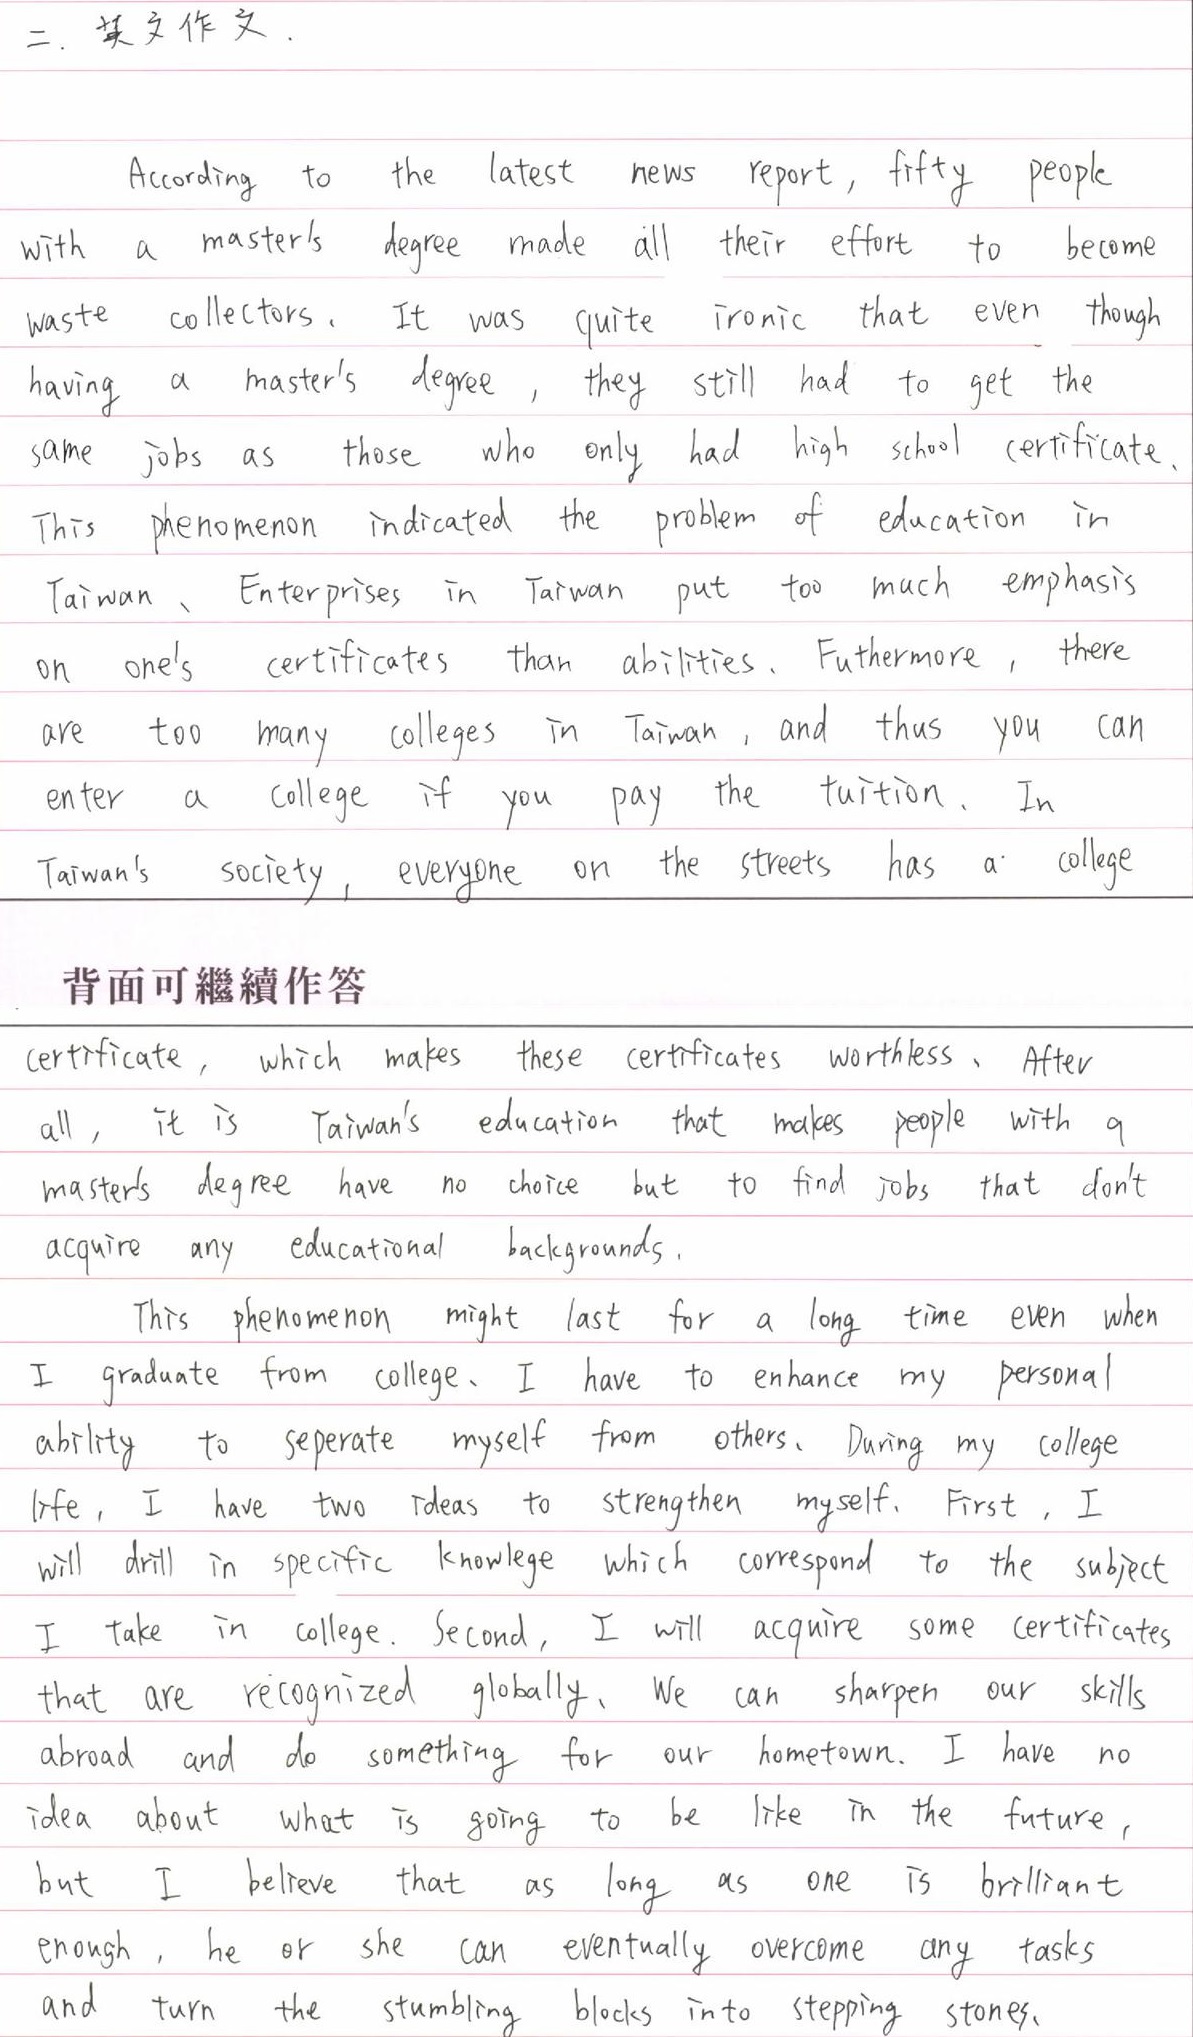 二. 英文作文.
According to the latest news report, fifty people
with a master's degree made all their effort to become
waste collectors. It was quite ironic that even though
having a master's degree, they still had to get the
same jobs as those who only had high school certificate.
This phenomenon indicated the problem of education in
Taiwan. Enterprises in Taiwan put too much emphasis
on one's certificates than abilities. Futhermore, there
are too many colleges in Taiwan, and thus you can
enter a college if you pay the tuition. In
Taiwan's society, everyone on the streets has a college
背面可繼續作答
certificate, which makes these certificates worthless. After
all, it is Taiwan's education that makes people with a
master's degree have no choice but to find jobs that don't
acquire any educational backgrounds.
This phenomenon might last for a long time even when
I graduate from college. I have to enhance my personal
ability to seperate myself from others. During my college
life, I have two ideas to strengthen myself. First, I
will drill in specific knowlege which correspond to the subject
I take in college. Second, I will acquire some certificates
that are recognized globally. We can sharpen our skills
abroad and do something for our hometown. I have no
idea about what is going to be like in the future,
but I believe that as long as one is brilliant
enough, he or she can eventually overcome any tasks
and turn the stumbling blocks into stepping stones.